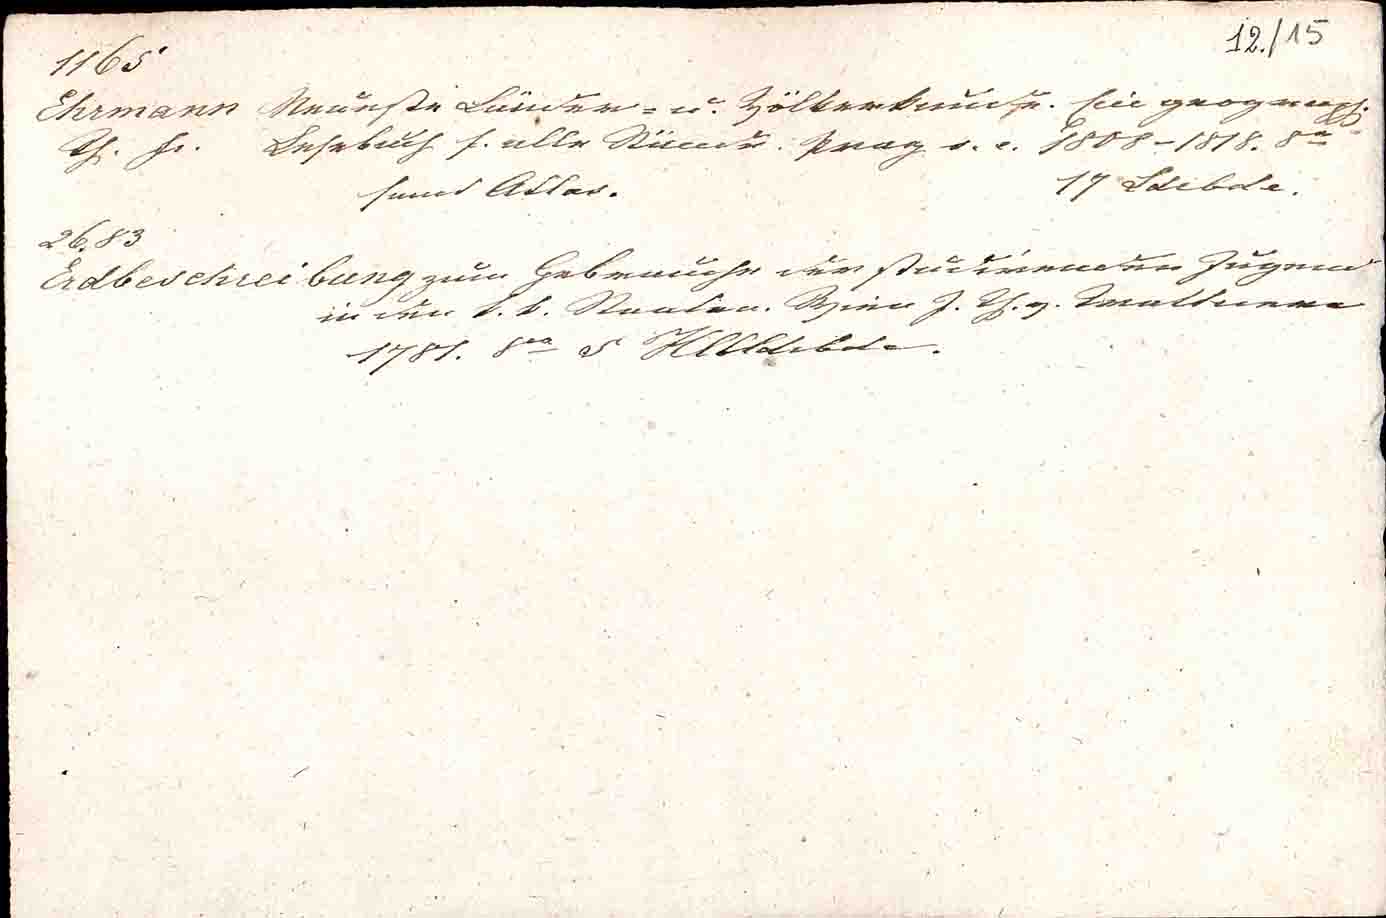 12./15
1165
Ehrmann Neueste Länder- u. Völkerkunde. Ein geograph.
Th. Fr. Lesebuch f. alle Stände. Prag 1808–1818. 8°
sammt Atlas. 17 Ldrbde.
2683
Erdbeschreibung zum Gebrauche der studirenden Jugend
in den k. k. Staaten. Wien J. Th. v. Trattnern
1781. 8° 5 Hlbldrbde.